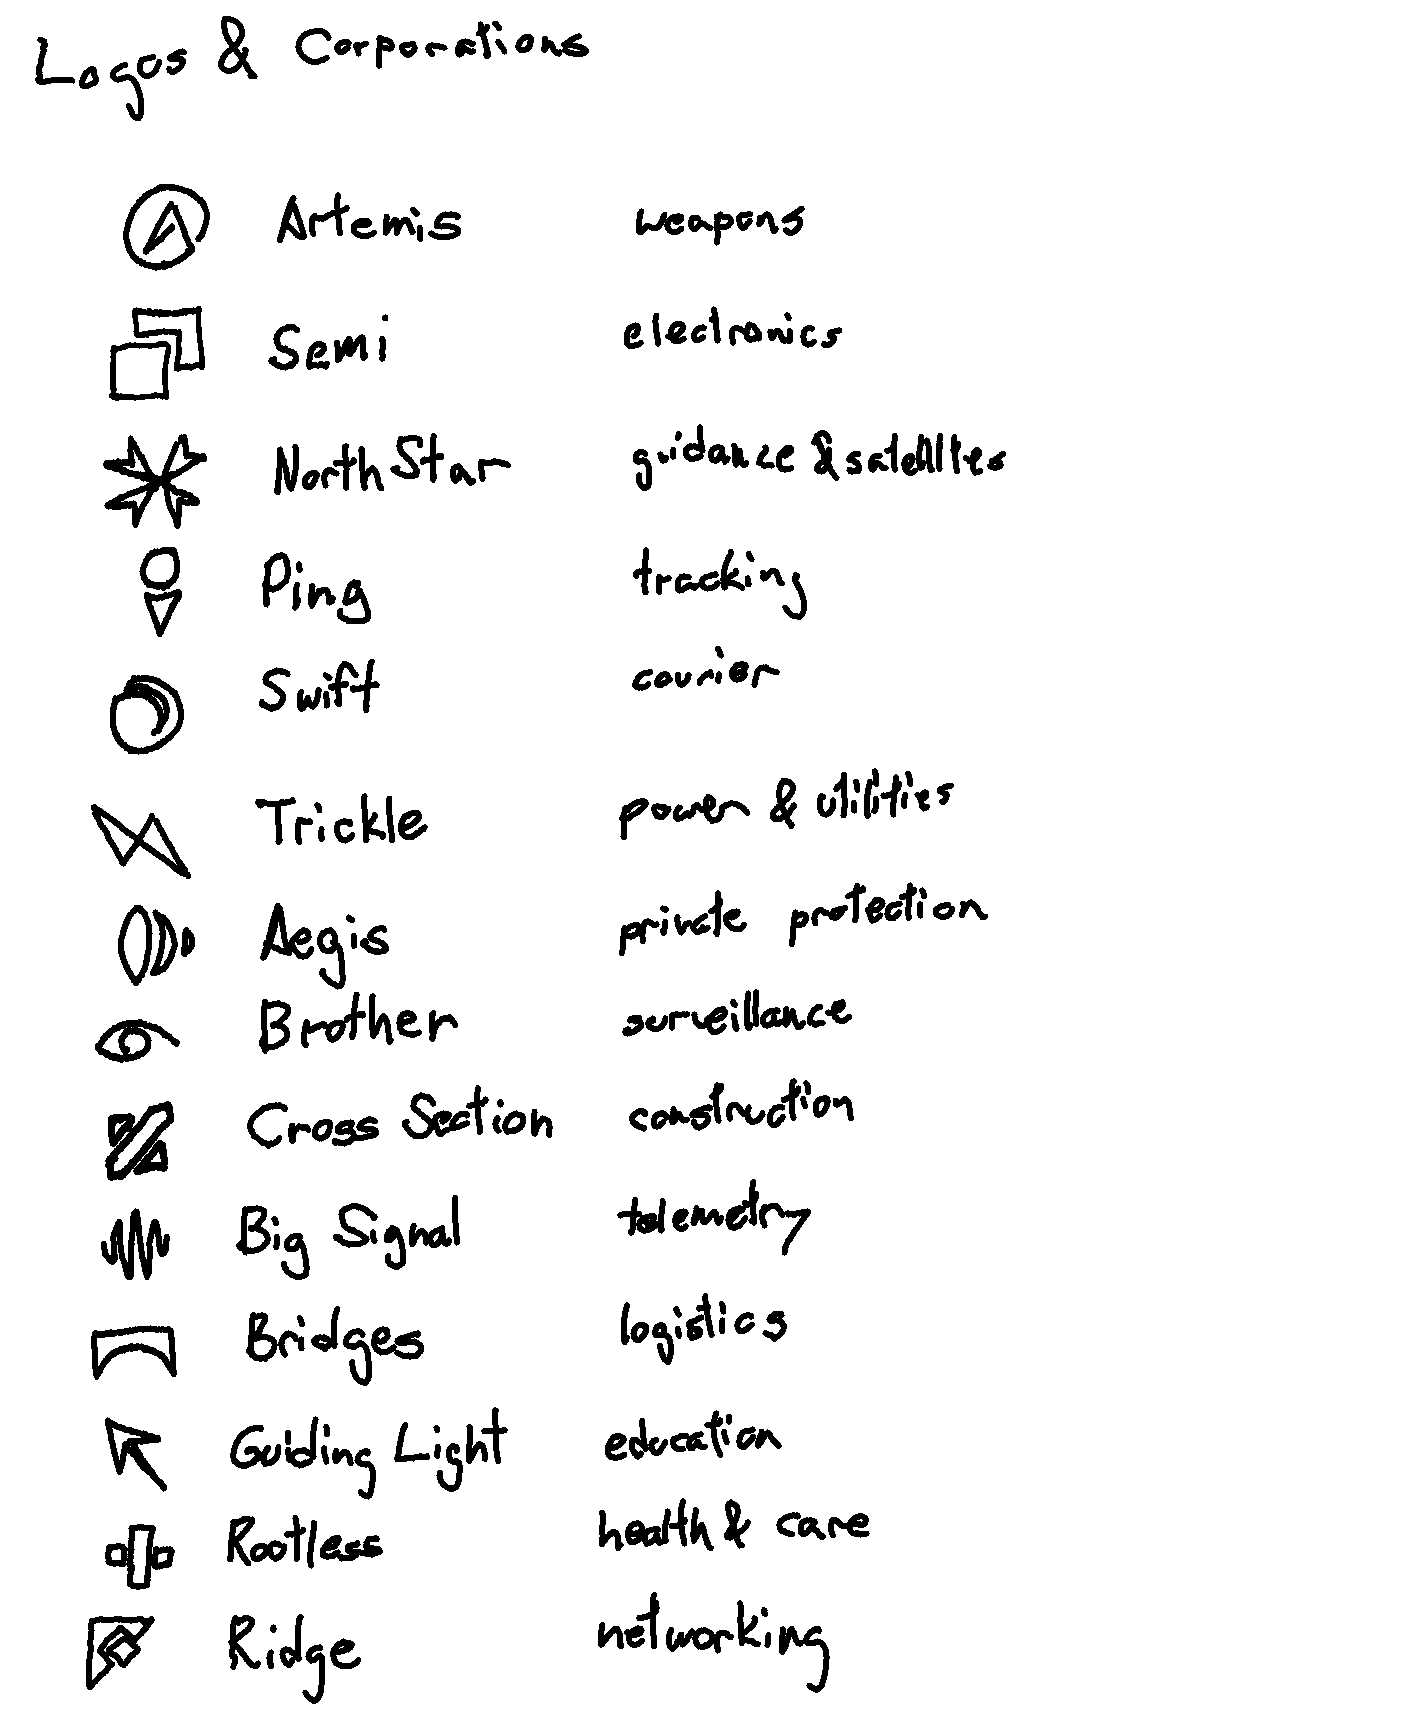 Logos & Corporations
Artemis weapons
Semi electronics
North Star guidance & satellites
Ping tracking
Swift courier
Trickle power & utilities
Aegis private protection
Brother surveillance
Cross Section construction
Big Signal telemetry
Bridges logistics
Guiding Light education
Rootless health & care
Ridge networking